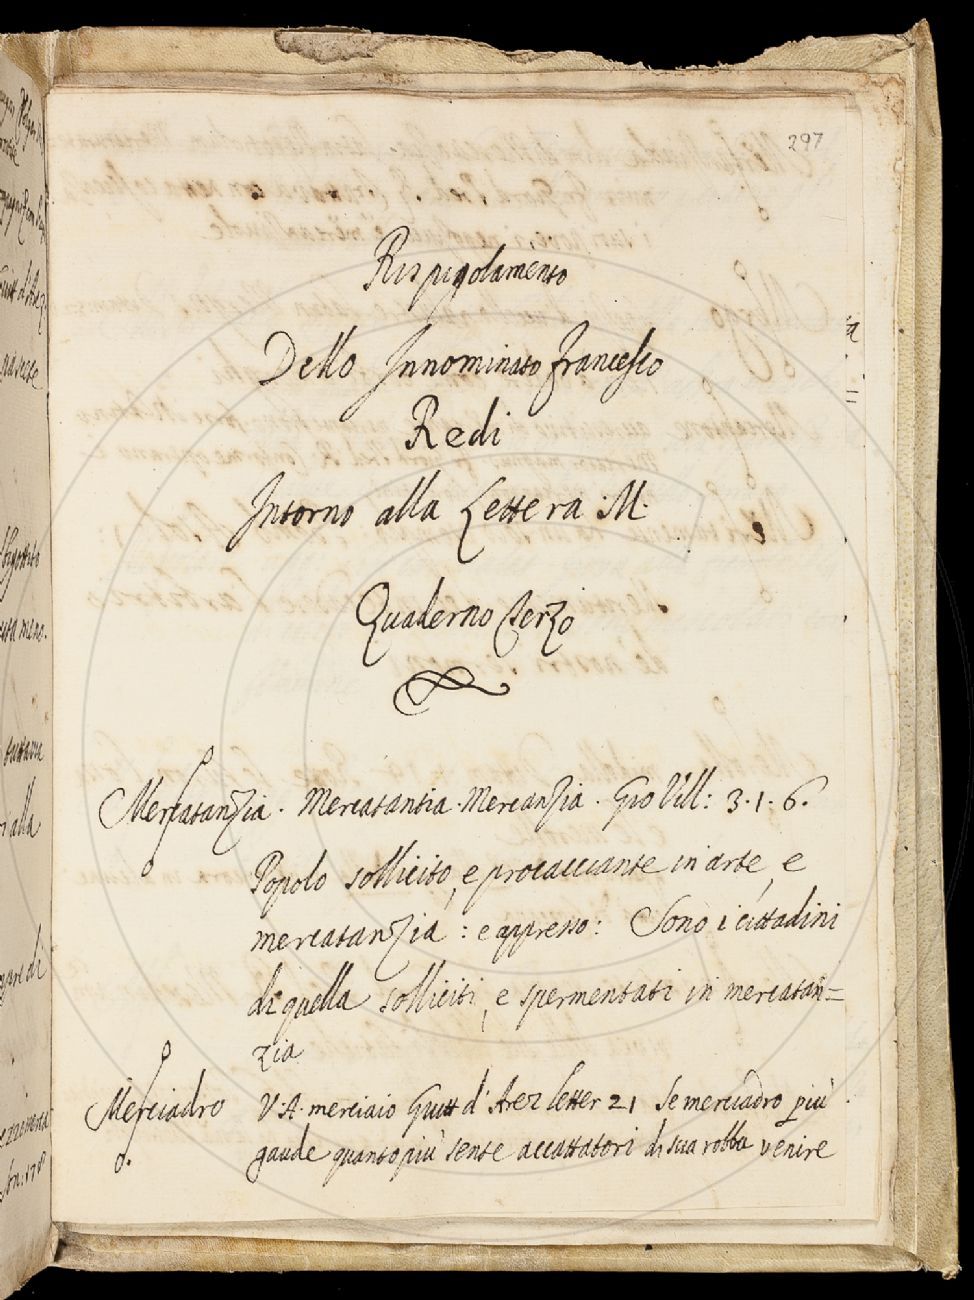 297
Rispigolamento
Dello Innominato Francesco
Redi
Intorno alla Lettera :M:
Quaderno Terzo
Mercatanzia. Mercatantia. Mercanzia. Gio Vill: 3.1.6.
Popolo sollicito, e procacciante in arte, e
mercatanzia: e appresso: Sono i cittadini
di quella solliciti, e spermentati in mercatan=
zia
Merciadro V.A. merciaio Guitt d'Arez letter 21 Se merciadro più
gaude quanto più sente accattatori di sua robba venire